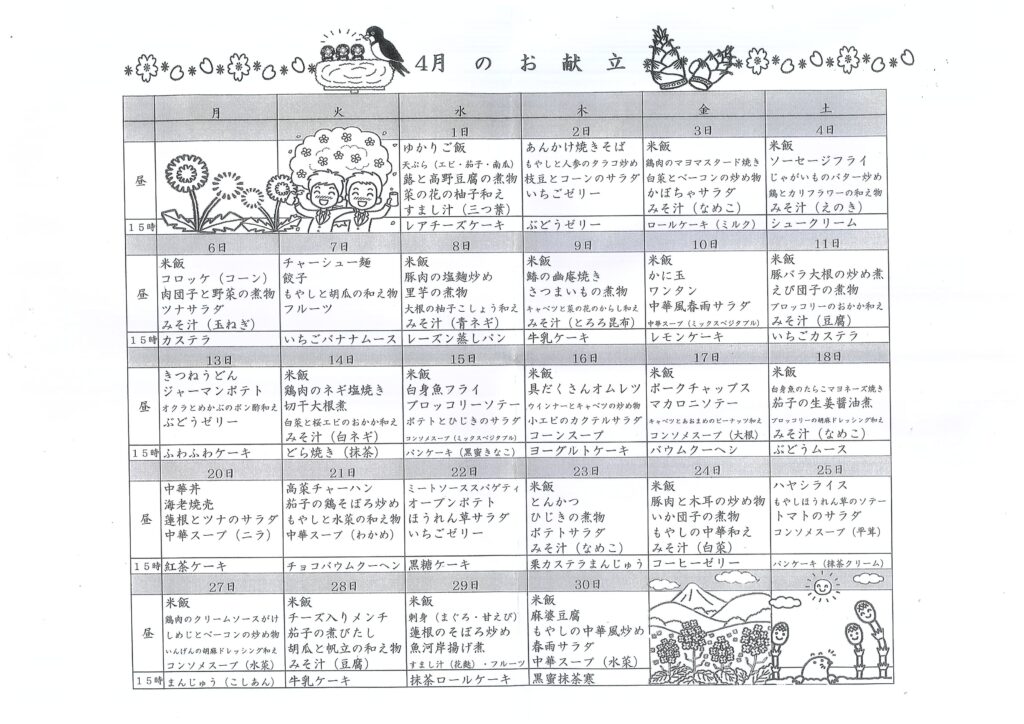 4月のお献立
月 火 水 木 金 土
1日 2日 3日 4日
昼
ゆかりご飯
天ぷら（エビ・茄子・南瓜）
蕗と高野豆腐の煮物
菜の花の柚子和え
すまし汁（三つ葉）
あんかけ焼きそば
もやしと人参のタラコ炒め
枝豆とコーンのサラダ
いちごゼリー
米飯
鶏肉のマヨマスタード焼き
白菜とベーコンの炒め物
かぼちゃサラダ
みそ汁（なめこ）
米飯
ソーセージフライ
じゃがいものバター炒め
鶏とカリフラワーの和え物
みそ汁（えのき）
15時 レアチーズケーキ ぶどうゼリー ロールケーキ（ミルク） シュークリーム
6日 7日 8日 9日 10日 11日
昼
米飯
コロッケ（コーン）
肉団子と野菜の煮物
ツナサラダ
みそ汁（玉ねぎ）
チャーシュー麺
餃子
もやしと胡瓜の和え物
フルーツ
米飯
豚肉の塩麹炒め
里芋の煮物
大根の柚子こしょう和え
みそ汁（青ネギ）
米飯
鰆の幽庵焼き
さつまいもの煮物
キャベツと菜の花のからし和え
みそ汁（とろろ昆布）
米飯
かに玉
ワンタン
中華風春雨サラダ
中華スープ（ミックスベジタブル）
米飯
豚バラ大根の炒め煮
えび団子の煮物
ブロッコリーのおかか和え
みそ汁（豆腐）
15時 カステラ いちごバナナムース レーズン蒸しパン 牛乳ケーキ レモンケーキ いちごカステラ
13日 14日 15日 16日 17日 18日
昼
きつねうどん
ジャーマンポテト
オクラとめかぶのポン酢和え
ぶどうゼリー
米飯
鶏肉のネギ塩焼き
切干大根煮
白菜と桜エビのおかか和え
みそ汁（白ネギ）
米飯
白身魚フライ
ブロッコリーソテー
ポテトとひじきのサラダ
コンソメスープ（ミックスベジタブル）
米飯
具だくさんオムレツ
ウインナーとキャベツの炒め物
小エビのカクテルサラダ
コーンスープ
米飯
ポークチャップス
マカロニソテー
キャベツとあおまめのピーナッツ和え
コンソメスープ（大根）
米飯
白身魚のたらこマヨネーズ焼き
茄子の生姜醤油煮
ブロッコリーの胡麻ドレッシング和え
みそ汁（なめこ）
15時 ふわふわケーキ どら焼き（抹茶） パンケーキ（黒蜜きなこ） ヨーグルトケーキ バウムクーヘン ぶどうムース
20日 21日 22日 23日 24日 25日
昼
中華丼
海老焼売
蓮根とツナのサラダ
中華スープ（ニラ）
高菜チャーハン
茄子の鶏そぼろ炒め
もやしと水菜の和え物
中華スープ（わかめ）
ミートソーススパゲティ
オーブンポテト
ほうれん草サラダ
いちごゼリー
米飯
とんかつ
ひじきの煮物
ポテトサラダ
みそ汁（なめこ）
米飯
豚肉と木耳の炒め物
いか団子の煮物
もやしの中華和え
みそ汁（白菜）
ハヤシライス
もやしほうれん草のソテー
トマトのサラダ
コンソメスープ（平茸）
15時 紅茶ケーキ チョコバウムクーヘン 黒糖ケーキ 栗カステラまんじゅう コーヒーゼリー パンケーキ（抹茶クリーム）
27日 28日 29日 30日
昼
米飯
鶏肉のクリームソースがけ
しめじとベーコンの炒め物
いんげんの胡麻ドレッシング和え
コンソメスープ（水菜）
米飯
チーズ入りメンチ
茄子の煮びたし
胡瓜と帆立の和え物
みそ汁（豆腐）
米飯
刺身（まぐろ・甘えび）
蓮根のそぼろ炒め
魚河岸揚げ煮
すまし汁（花麩）・フルーツ
米飯
麻婆豆腐
もやしの中華風炒め
春雨サラダ
中華スープ（水菜）
15時 まんじゅう（こしあん） 牛乳ケーキ 抹茶ロールケーキ 黒蜜抹茶寒